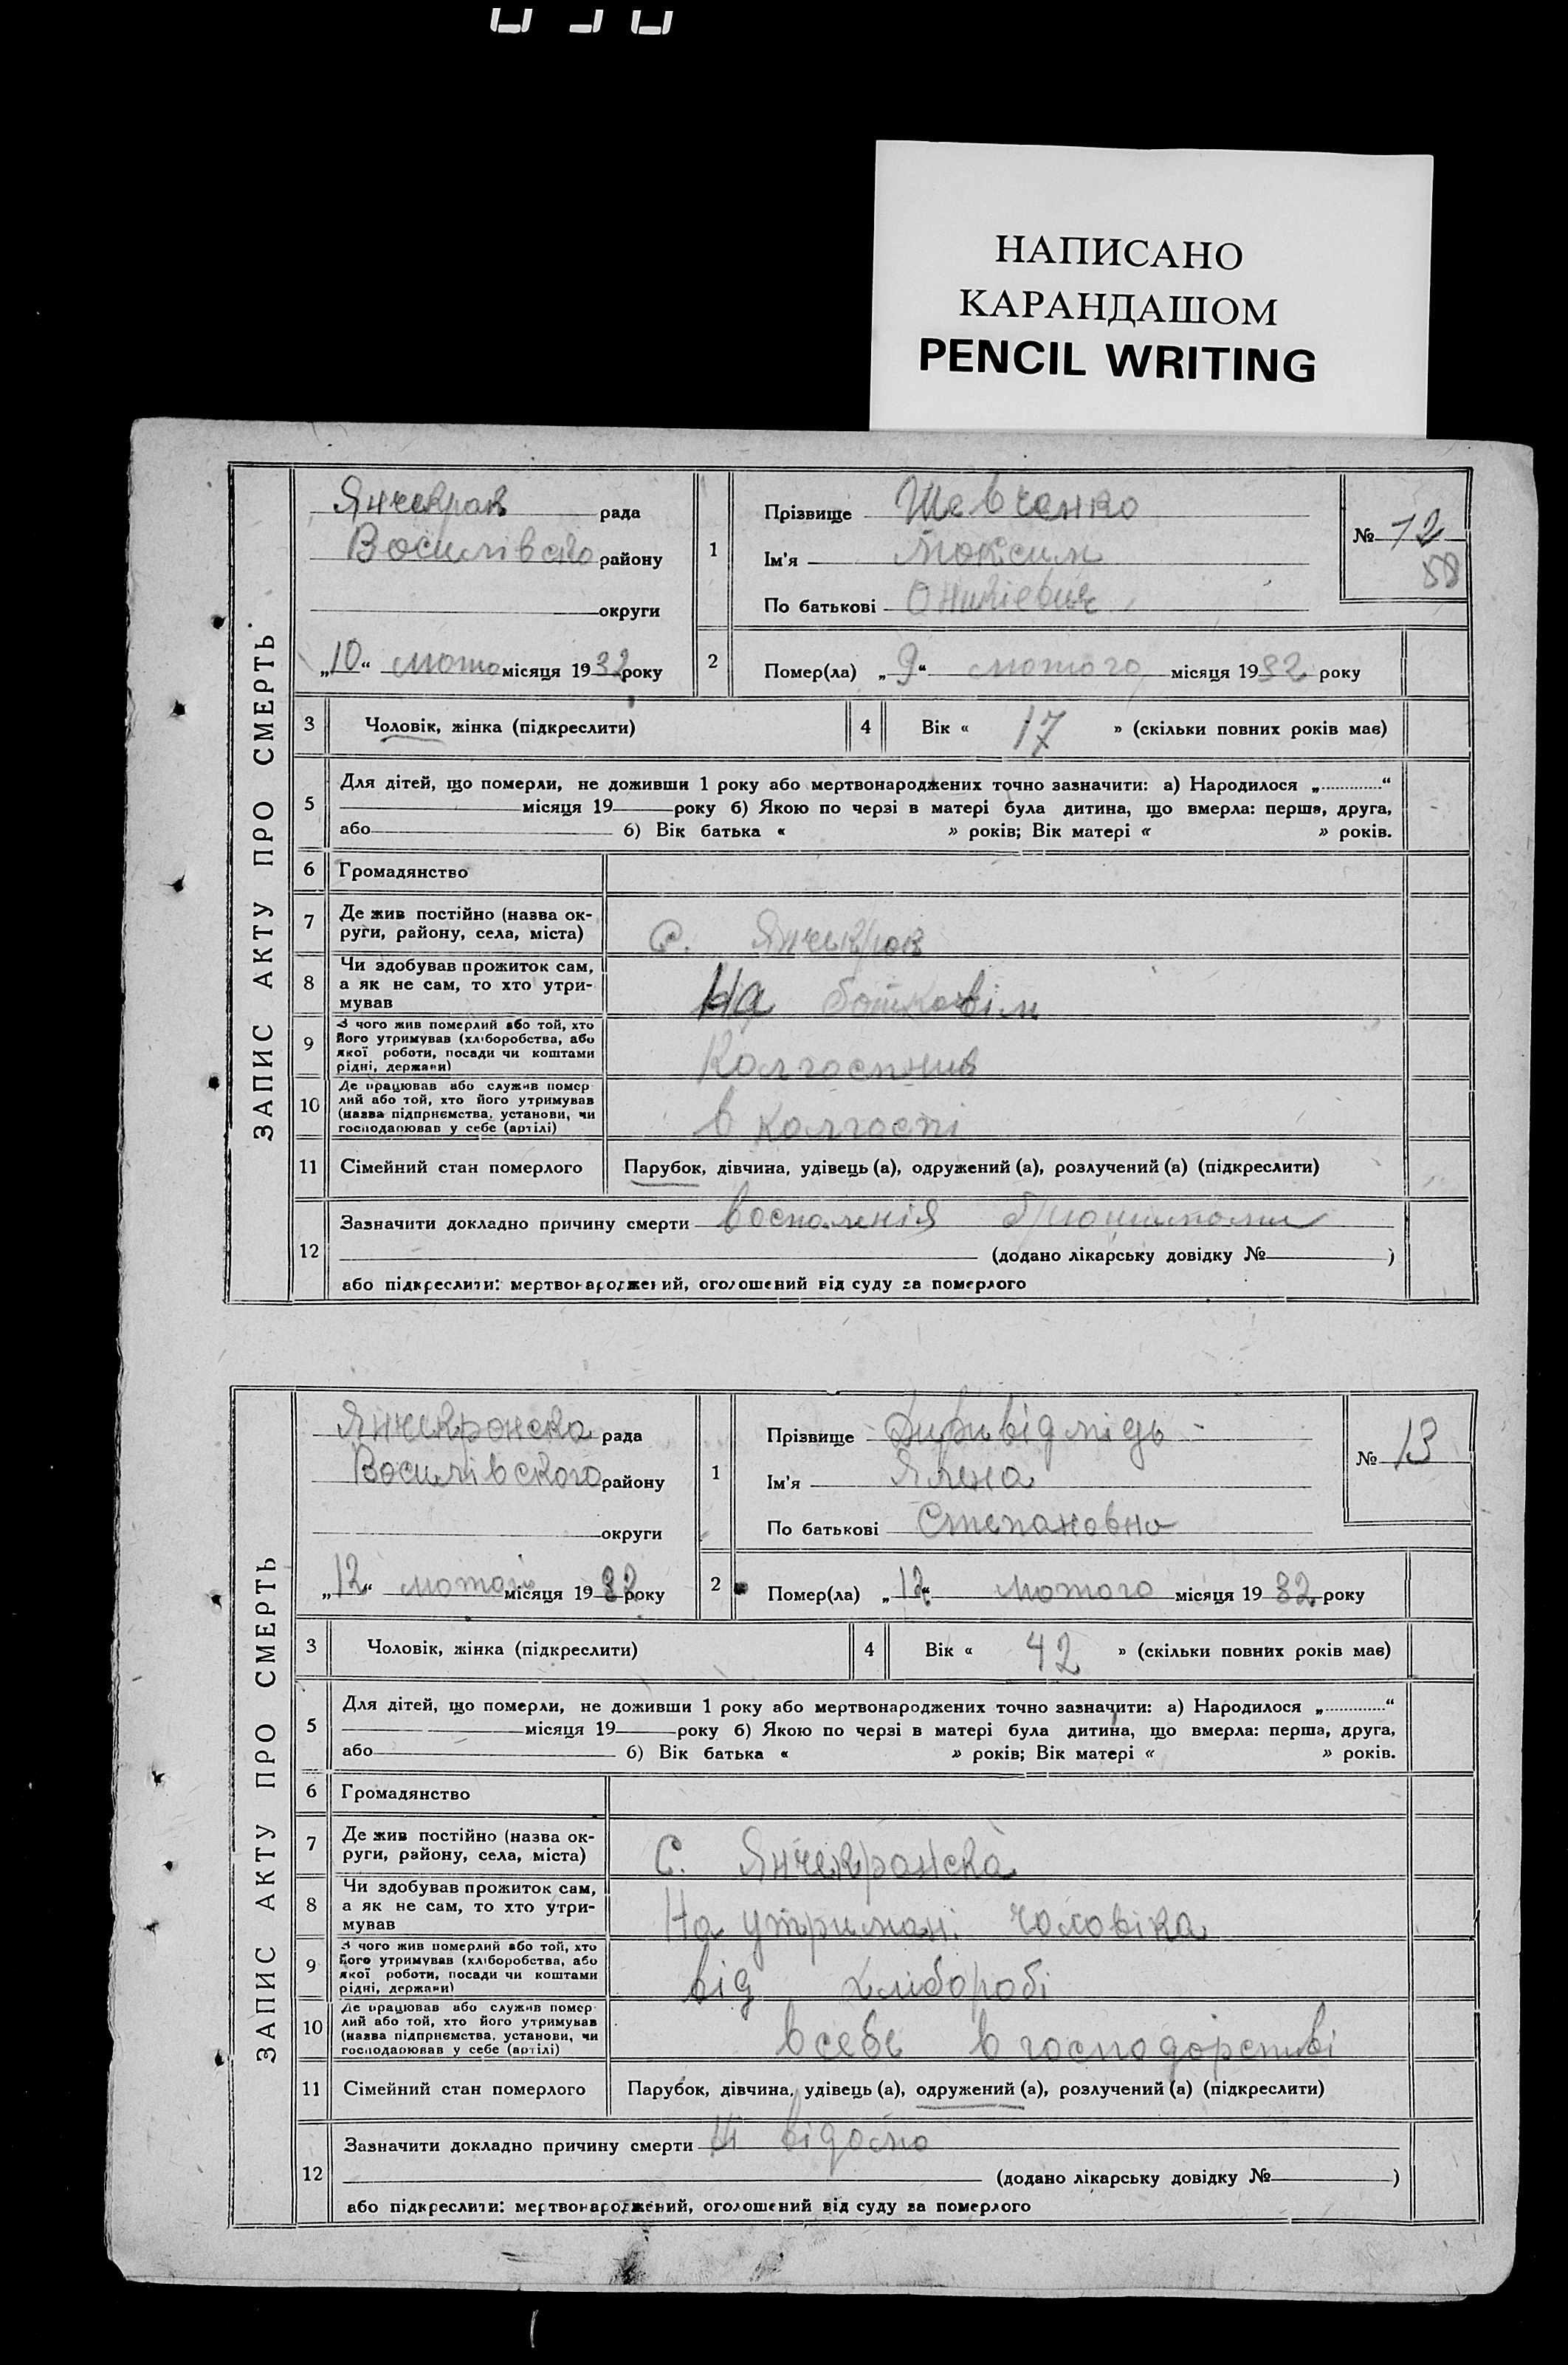 НАПИСАНО
КАРАНДАШОМ
PENCIL WRITING
ЗАПИС АКТУ ПРО СМЕРТЬ
Янчекрак рада
Василівско району
округи
„10“ лютого місяця 1932 року
1 Прізвище Шевченко
Ім'я Максим
По батькові
№ 12
58
2 Помер(ла) „9“ лютого місяця 1932 року
3 Чоловік, жінка (підкреслити)
4 Вік « 17 » (скільки повних років має)
5 Для дітей, що померли, не доживши 1 року або мертвонароджених точно зазначити: а) Народилося „ “
місяця 19 року б) Якою по черзі в матері була дитина, що вмерла: перша, друга,
або б) Вік батька « » років; Вік матері « » років.
6 Громадянство
7 Де жив постійно (назва ок-
руги, району, села, міста)
С. Янчекрак
8 Чи здобував прожиток сам,
а як не сам, то хто утри-
мував
На батьковім
9 З чого жив померлий або той, хто
його утримував (хліборобства, або
якої роботи, посади чи коштами
рідні, держави)
Колгоспник
10 Де працював або служив помер
лий або той, хто його утримував
(назва підприємства, установи, чи
господарював у себе (артілі)
в колгоспі
11 Сімейний стан померлого
Парубок, дівчина, удівець (а), одружений (а), розлучений (а) (підкреслити)
12 Зазначити докладно причину смерти воспаленія
(додано лікарську довідку № )
або підкреслити: мертвонароджений, оголошений від суду за померлого
ЗАПИС АКТУ ПРО СМЕРТЬ
Янчекранска рада
Василівского району
округи
„12“ лютого місяця 1932 року
1 Прізвище
Ім'я Ялена
По батькові Степановна
№ 13
2 Помер(ла) „12“ лютого місяця 1932 року
3 Чоловік, жінка (підкреслити)
4 Вік « 42 » (скільки повних років має)
5 Для дітей, що померли, не доживши 1 року або мертвонароджених точно зазначити: а) Народилося „ “
місяця 19 року б) Якою по черзі в матері була дитина, що вмерла: перша, друга,
або б) Вік батька « » років; Вік матері « » років.
6 Громадянство
7 Де жив постійно (назва ок-
руги, району, села, міста)
С. Янчекранска
8 Чи здобував прожиток сам,
а як не сам, то хто утри-
мував
На утримані чоловіка
9 З чого жив померлий або той, хто
його утримував (хліборобства, або
якої роботи, посади чи коштами
рідні, держави)
від хлиборобі
10 Де працював або служив помер
лий або той, хто його утримував
(назва підприємства, установи, чи
господарював у себе (артілі)
в себе в господорстві
11 Сімейний стан померлого
Парубок, дівчина, удівець (а), одружений (а), розлучений (а) (підкреслити)
12 Зазначити докладно причину смерти Ні відомо
(додано лікарську довідку № )
або підкреслити: мертвонароджений, оголошений від суду за померлого